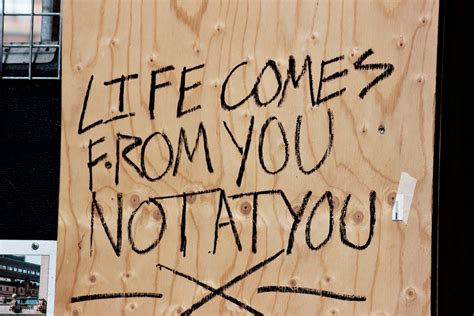 LIFE COMES
FROM YOU
NOT AT YOU